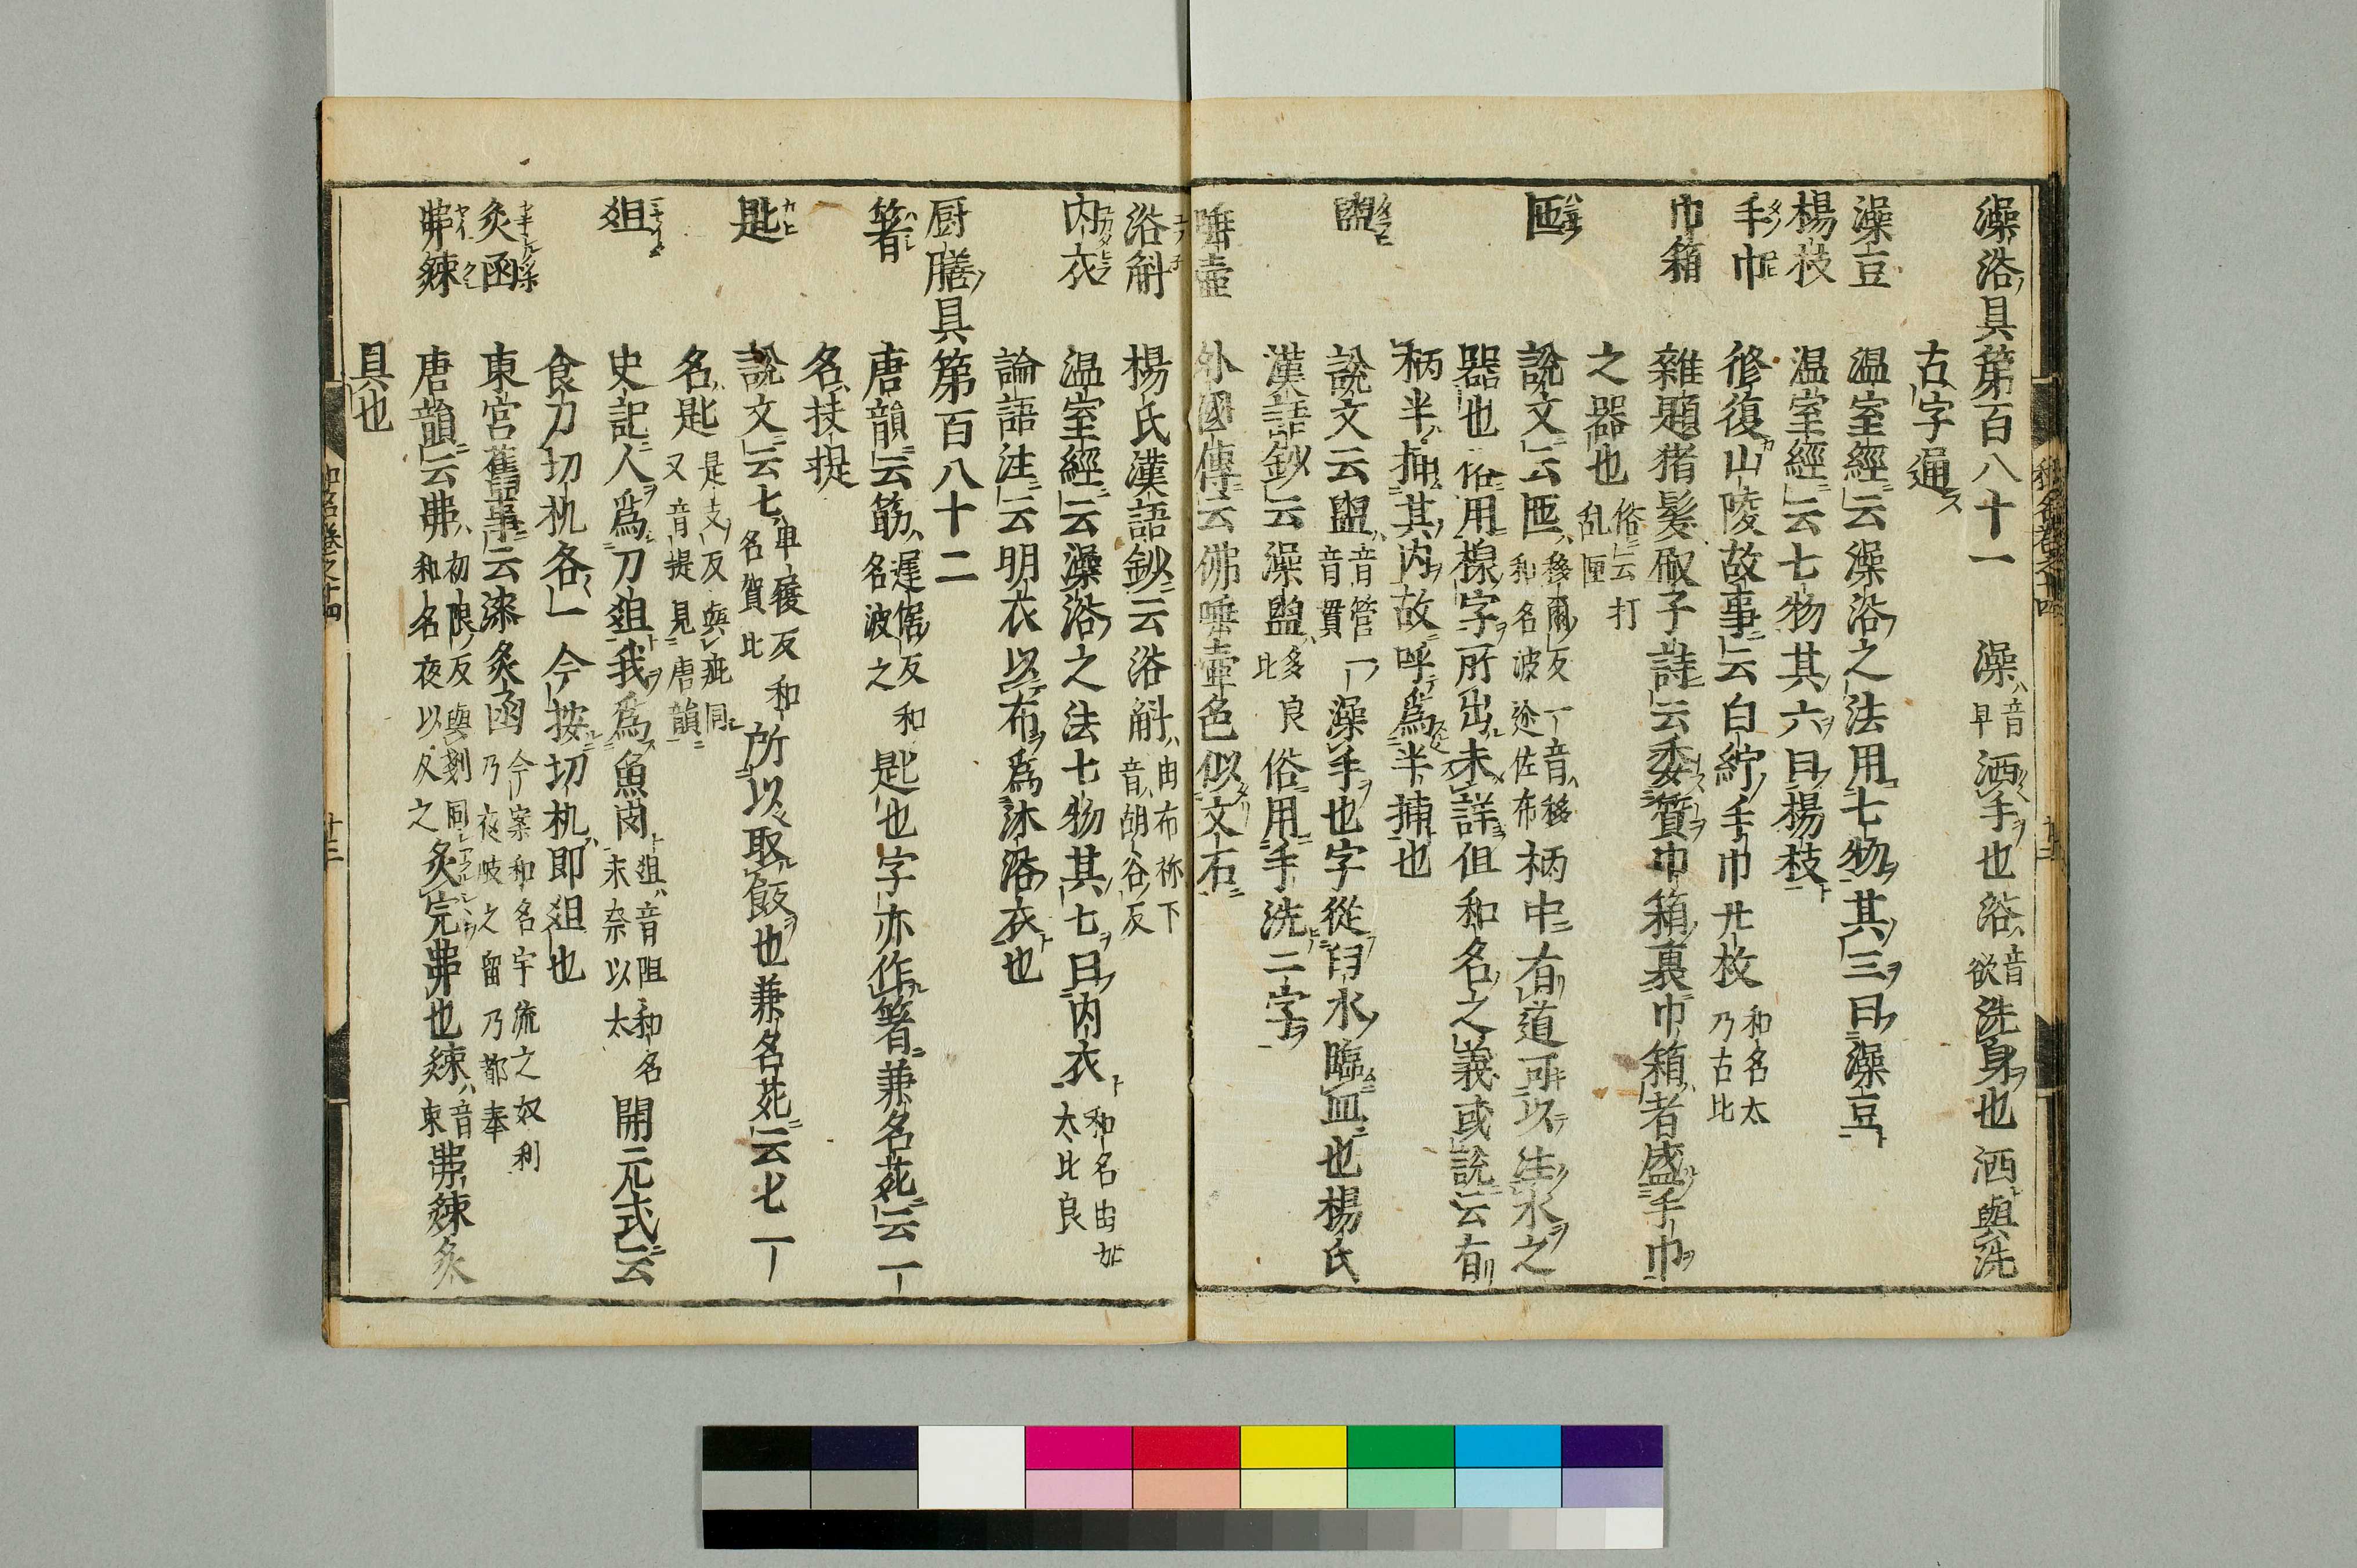 澡浴具第百八十一 澡音早洒手也浴音欲洗身也洒與洗
古字通
澡豆 温室經云澡浴之法用七物其三曰澡豆
楊枝 温室經云七物其六曰楊枝
手巾 修復山陵故事云白紵手巾廿枚和名太乃古比
巾箱 雜題猪髮刷子詩云委質巾箱裏巾箱者盛手巾
之器也俗云打乱匣
匜 說文云匜移爾反一音移和名波迩佐布柄中有道可以注水之
器也俗用楾字所出未詳但和名之義或說云有
柄半插其内故呼為半插也
盥 說文云盥音管一音貫澡手也字從臼水臨皿也楊氏
漢語鈔云澡盥多良比俗用手洗二字
唾壷 外國傳云佛唾壷色似文石
浴斛 楊氏漢語鈔云浴斛由布祢下音胡谷反
内衣 温室經云澡浴之法七物其七曰内衣和名由加太比良
論語注云明衣以布為沐浴衣也
厨膳具第百八十二
箸 唐韻云筯遲倨反和名波之匙也字亦作箸兼名苑云一
名扶提
匙 說文云匕卑履反和名賀比所以取飯也兼名苑云匕一
名匙是支反與䟽同又音提見唐韻
俎 史記人為刀俎我為魚肉俎音阻和名末奈以太開元式云
食刀切机各一今按切机即俎也
炙函 東宮舊事云漆炙函今案和名宇流之奴利乃夜岐之留乃都奉
弗𫁡 唐韻云弗初限反與剗同和名夜以久之炙完弗也𫁡音東弗𫁡炙
具也
和名卷之十四
廿三